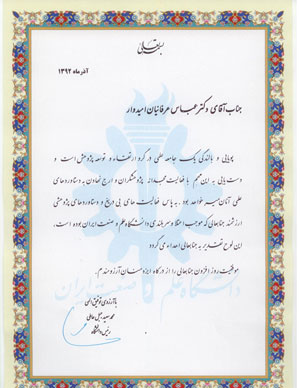 بسمه تعالی
آذر ماه ۱۳۹۲
جناب آقای دکتر عباس عرفانیان امیدوار
پویایی و بالندگی یک جامعه علمی در گرو ارتقاء و توسعه پژوهش است و
دست یابی به این مهم با فعالیت مجدانه پژوهشگران و ارج نهادن به دستاوردهای
علمی آنان میسر خواهد بود. به پاس فعالیت های بی دریغ و دستاوردهای پژوهشی
ارزشمند جنابعالی که موجب اعتلا و سربلندی دانشگاه علم و صنعت ایران بوده است،
این لوح تقدیر به جنابعالی اهداء می گردد
موفقیت روز افزون جنابعالی را از درگاه ایزد منان آرزومندم.
با آرزوی توفیق الهی
محمد سعید جبل عاملی
رئیس دانشگاه
دانشگاه علم و صنعت ایران